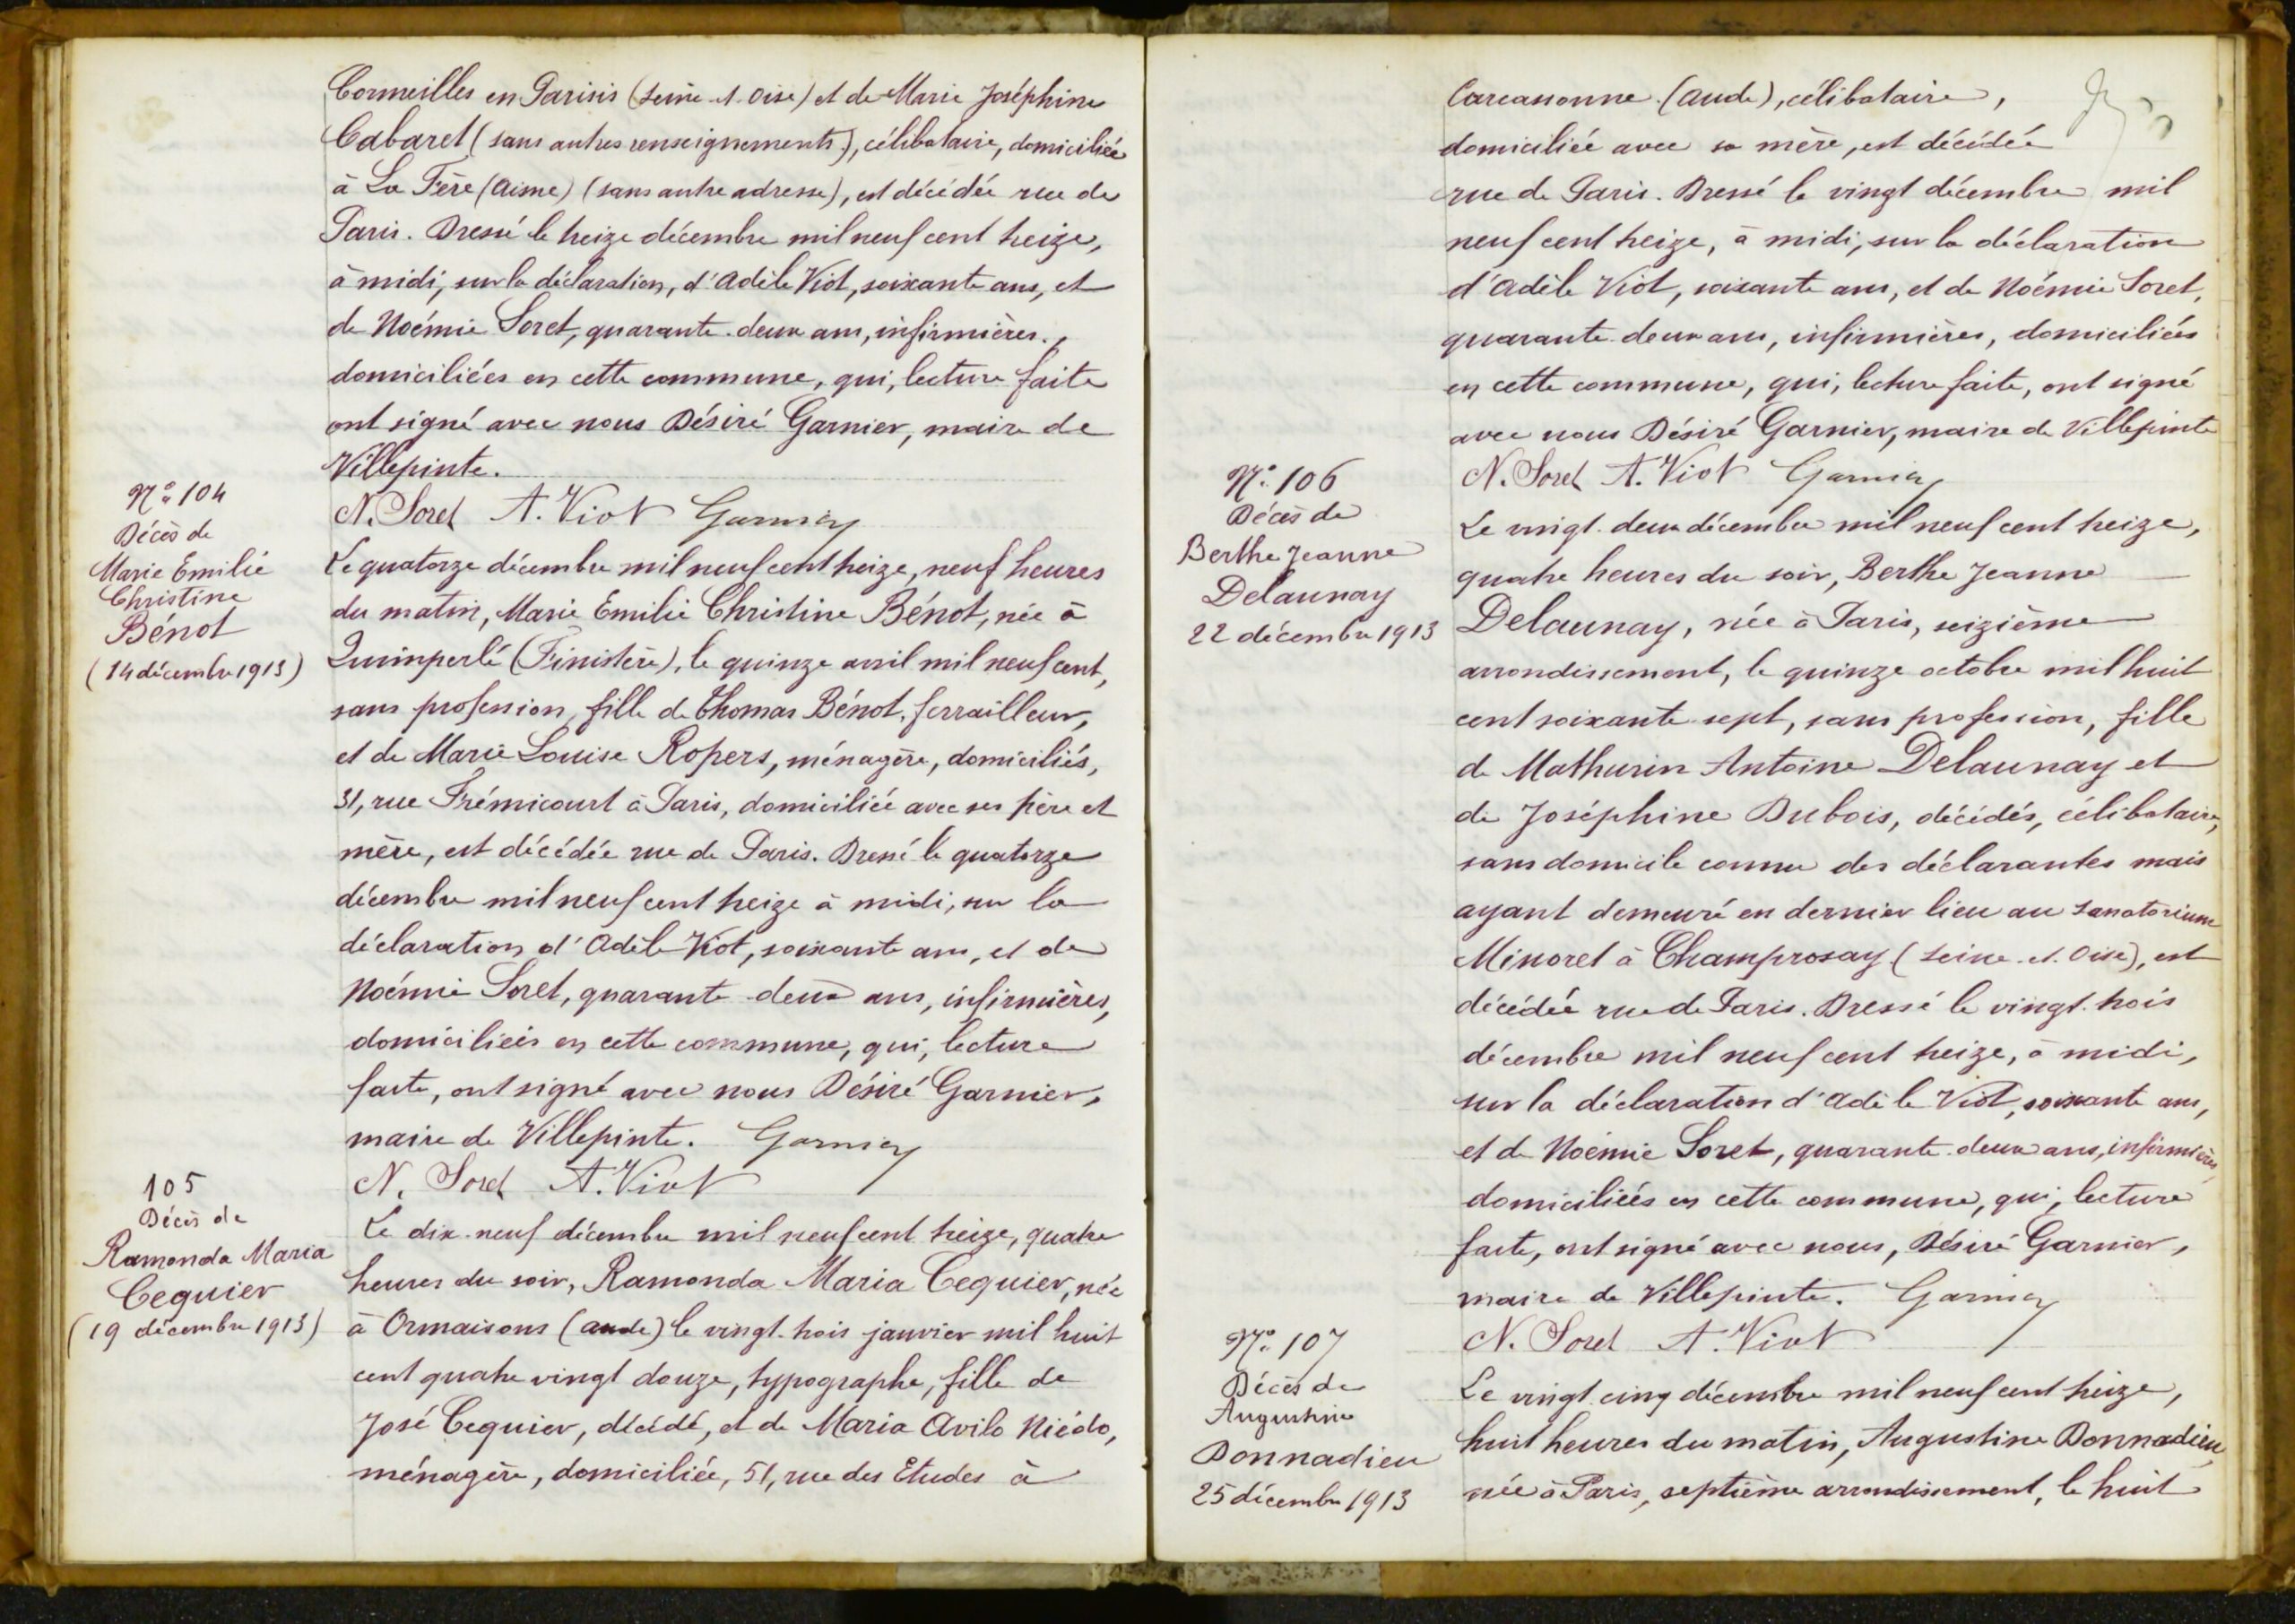 Cormeilles en Parisis (Seine-et-Oise) et de Marie Joséphine
Cabaret (sans autres renseignements), célibataire, domiciliée
à La Fère (Aisne) (sans autre adresse), est décédée rue de
Paris. Dressé le treize décembre mil neuf cent treize,
à midi, sur la déclaration, d'Adèle Viot, soixante ans, et
de Noémie Soret, quarante-deux ans, infirmières,
domiciliées en cette commune, qui, lecture faite
ont signé avec nous Désiré Garnier, maire de
Villepinte.
N. Soret A. Viot Garnier
N° 104
Décès de
Marie Emilie
Christine
Bénot
(14 décembre 1913)
Le quatorze décembre mil neuf cent treize, neuf heures
du matin, Marie Emilie Christine Bénot, née à
Quimperlé (Finistère), le quinze avril mil neuf cent,
sans profession, fille de Thomas Bénot, ferrailleur,
et de Marie Louise Ropers, ménagère, domiciliés,
31, rue Frémicourt à Paris, domiciliée avec ses père et
mère, est décédée rue de Paris. Dressé le quatorze
décembre mil neuf cent treize à midi, sur la
déclaration d'Adèle Viot, soixante ans, et de
Noémie Soret, quarante-deux ans, infirmières,
domiciliées en cette commune, qui, lecture
faite, ont signé avec nous Désiré Garnier,
maire de Villepinte. Garnier
N. Soret A. Viot
105
Décès de
Ramonda Maria
Cequier
(19 décembre 1913)
Le dix-neuf décembre mil neuf cent treize, quatre
heures du soir, Ramonda Maria Cequier, née
à Ormaisons (Aude) le vingt-trois janvier mil huit
cent quatre vingt douze, typographe, fille de
José Cequier, décédé, et de Maria Avila Niédo,
ménagère, domiciliée, 51, rue des Etudes à
Carcassonne (Aude), célibataire,
domiciliée avec sa mère, est décédée
rue de Paris. Dressé le vingt décembre mil
neuf cent treize, à midi, sur la déclaration
d'Adèle Viot, soixante ans, et de Noémie Soret,
quarante-deux ans, infirmières, domiciliées
en cette commune, qui, lecture faite, ont signé
avec nous Désiré Garnier, maire de Villepinte
N. Soret A. Viot Garnier
N° 106
Décès de
Berthe Jeanne
Delaunay
22 décembre 1913
Le vingt-deux décembre mil neuf cent treize,
quatre heures du soir, Berthe Jeanne
Delaunay, née à Paris, seizième
arrondissement, le quinze octobre mil huit
cent soixante-sept, sans profession, fille
de Mathurin Antoine Delaunay et
de Joséphine Dubois, décédés, célibataire,
sans domicile connu des déclarantes mais
ayant demeuré en dernier lieu au Sanatorium
Minoret à Champrosay (Seine-et-Oise), est
décédée rue de Paris. Dressé le vingt-trois
décembre mil neuf cent treize, à midi,
sur la déclaration d'Adèle Viot, soixante ans,
et de Noémie Soret, quarante-deux ans, infirmières,
domiciliées en cette commune, qui, lecture
faite, ont signé avec nous, Désiré Garnier,
maire de Villepinte. Garnier
N. Soret A. Viot
N° 107
Décès de
Augustine
Donnadieu
25 décembre 1913
Le vingt-cinq décembre mil neuf cent treize,
huit heures du matin, Augustine Donnadieu,
née à Paris, septième arrondissement, le huit